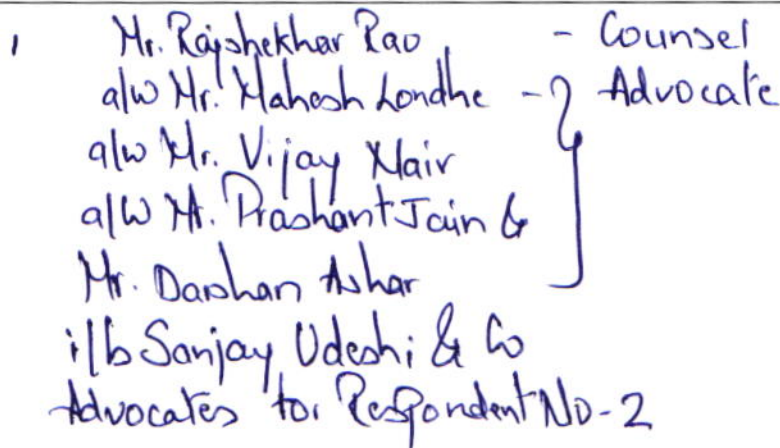 1 Mr. Rajshekhar Rao - Counsel
a/w Mr. Mahesh Londhe - Advocate
a/w Mr. Vijay Nair
a/w Mr. Prashant Jain &
Mr. Darshan Ashar
i/b Sanjay Udeshi & Co
Advocates for Respondent No-2